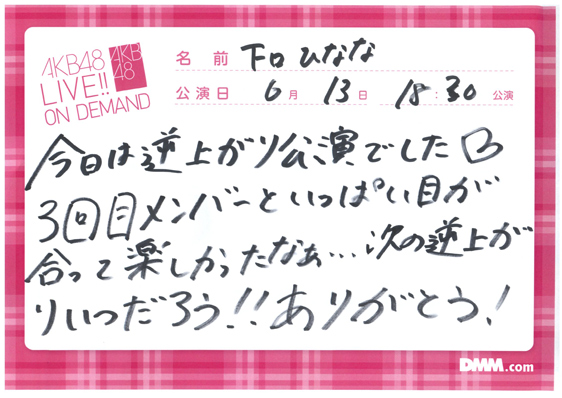 AKB48
LIVE!!
ON DEMAND
AKB
48
名前 下口ひなな
公演日 6月 13日 18:30 公演
今日は逆上がり公演でした
3回目メンバーといっぱい目が
合って楽しかったなぁ...次の逆上が
りいつだろう!!ありがとう!
DMM.com